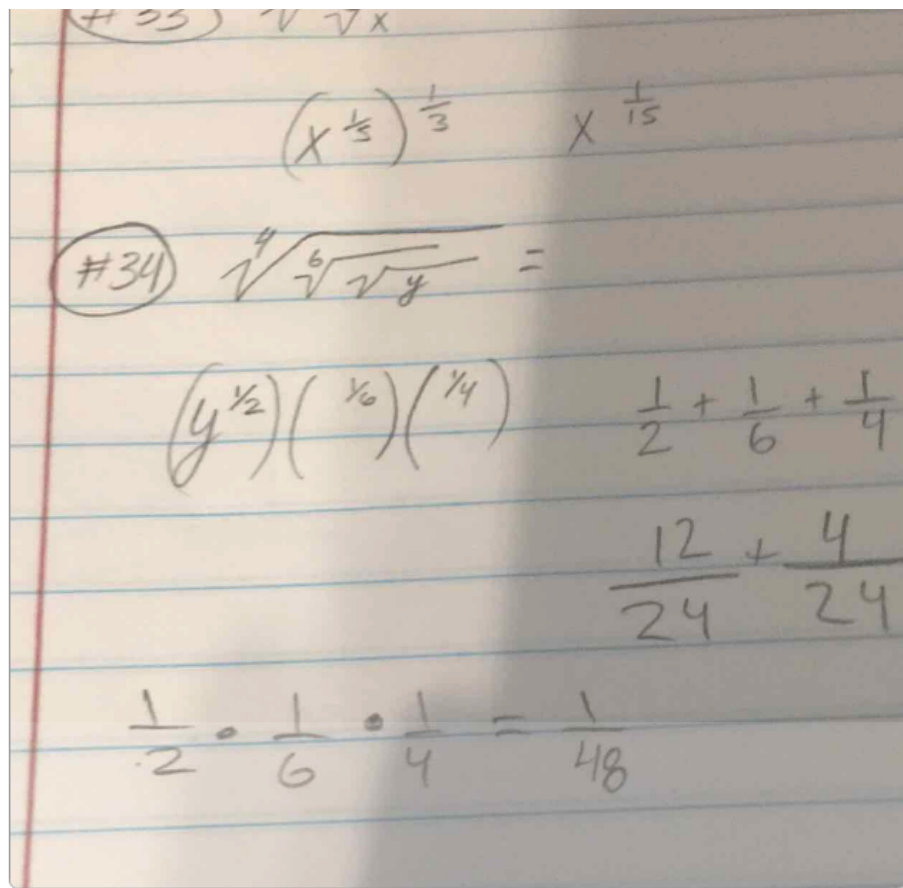 #33 √ √x
(x^1/5)^1/3 x^1/15
#34 ⁴√ ⁶√ √y =
(y^1/2)( ^1/6)( ^1/4) 1/2 + 1/6 + 1/4
12/24 + 4/24
1/2 • 1/6 • 1/4 = 1/48